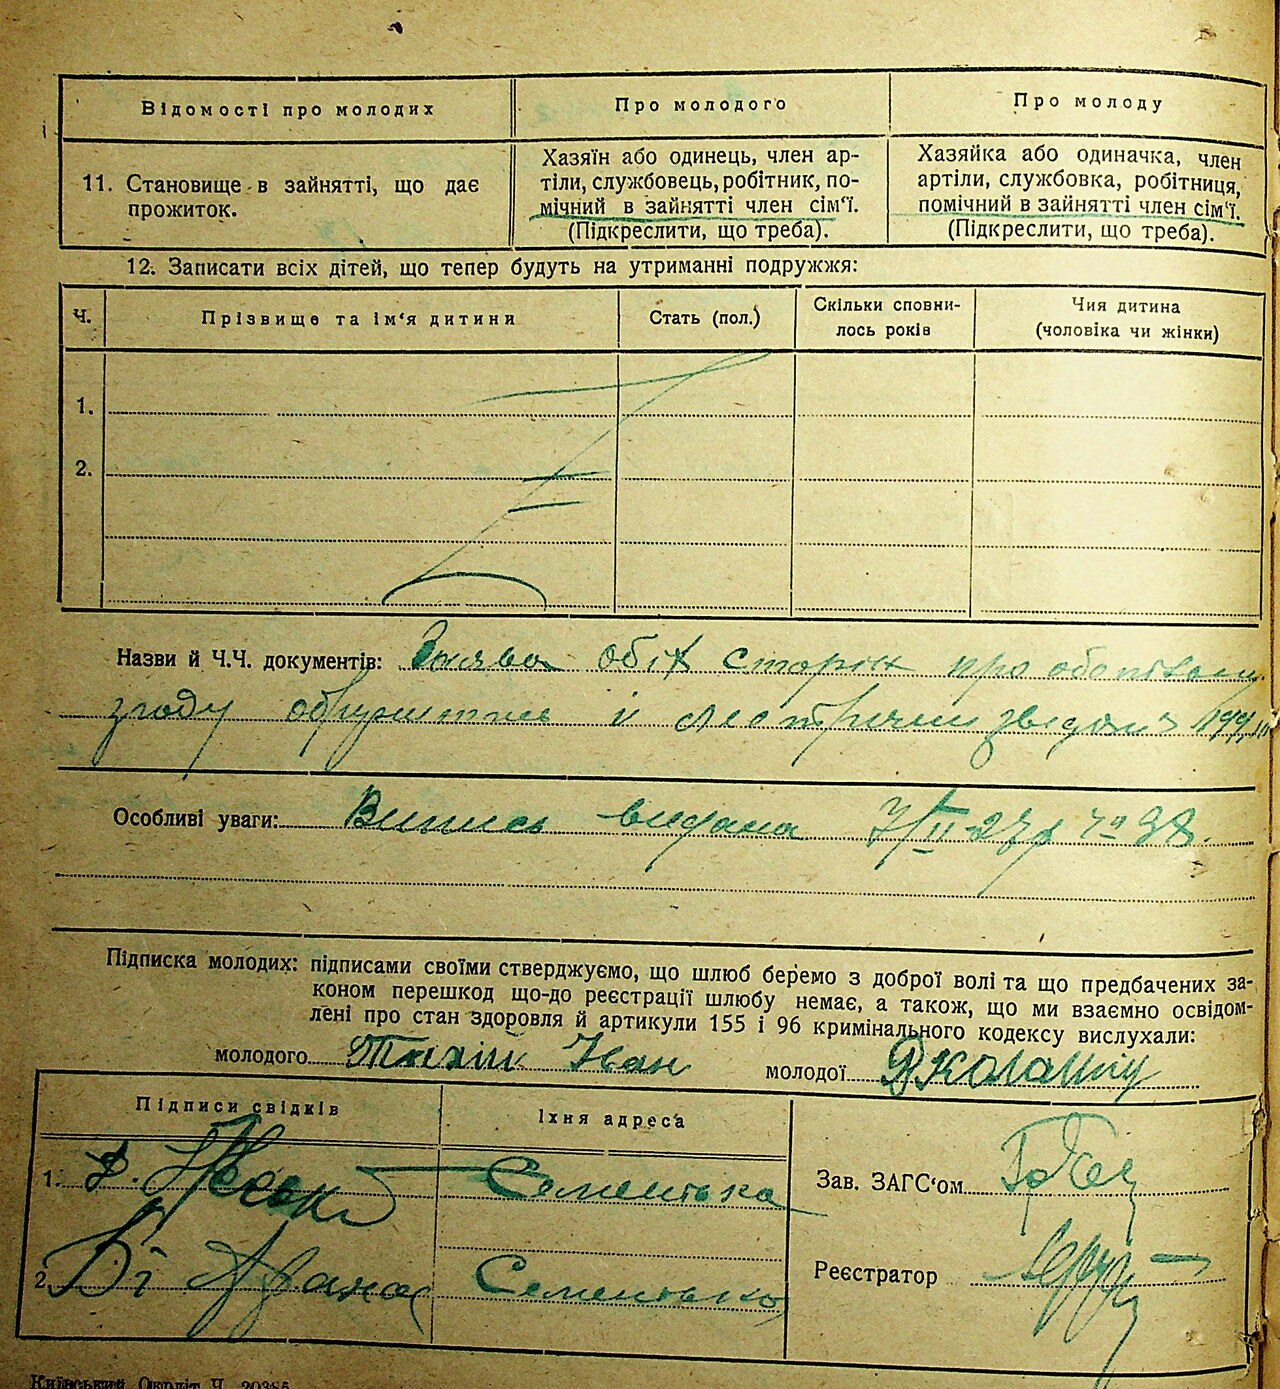 Відомості про молодих
Про молодого
Про молоду
11. Становище в зайнятті, що дає
прожиток.
Хазяїн або одинець, член ар-
тіли, службовець, робітник, по-
мічний в зайнятті член сім‘ї.
(Підкреслити, що треба).
Хазяйка або одиначка, член
артіли, службовка, робітниця,
помічний в зайнятті член сім‘ї.
(Підкреслити, що треба).
12. Записати всіх дітей, що тепер будуть на утриманні подружжя:
Ч.
Прізвище та ім‘я дитини
Стать (пол.)
Скільки сповни-
лось років
Чия дитина
(чоловіка чи жінки)
1.
2.
Назви й Ч.Ч. документів: Заява обіх сторін про обопільну
згоду і
Особливі уваги: Випись видана 7/II-27р № 38.
Підписка молодих: підписами своїми стверджуємо, що шлюб беремо з доброї волі та що предбачених за-
коном перешкод що-до реєстрації шлюбу немає, а також, що ми взаємно освідом-
лені про стан здоровля й артикули 155 і 96 кримінального кодексу вислухали:
молодого Тихій Іван
молодої
Підписи свідків
Їхня адреса
1.
Семенівка
Зав. ЗАГС‘ом
2.
Семенівка
Реєстратор
Київський Окрліт Ч. 20385